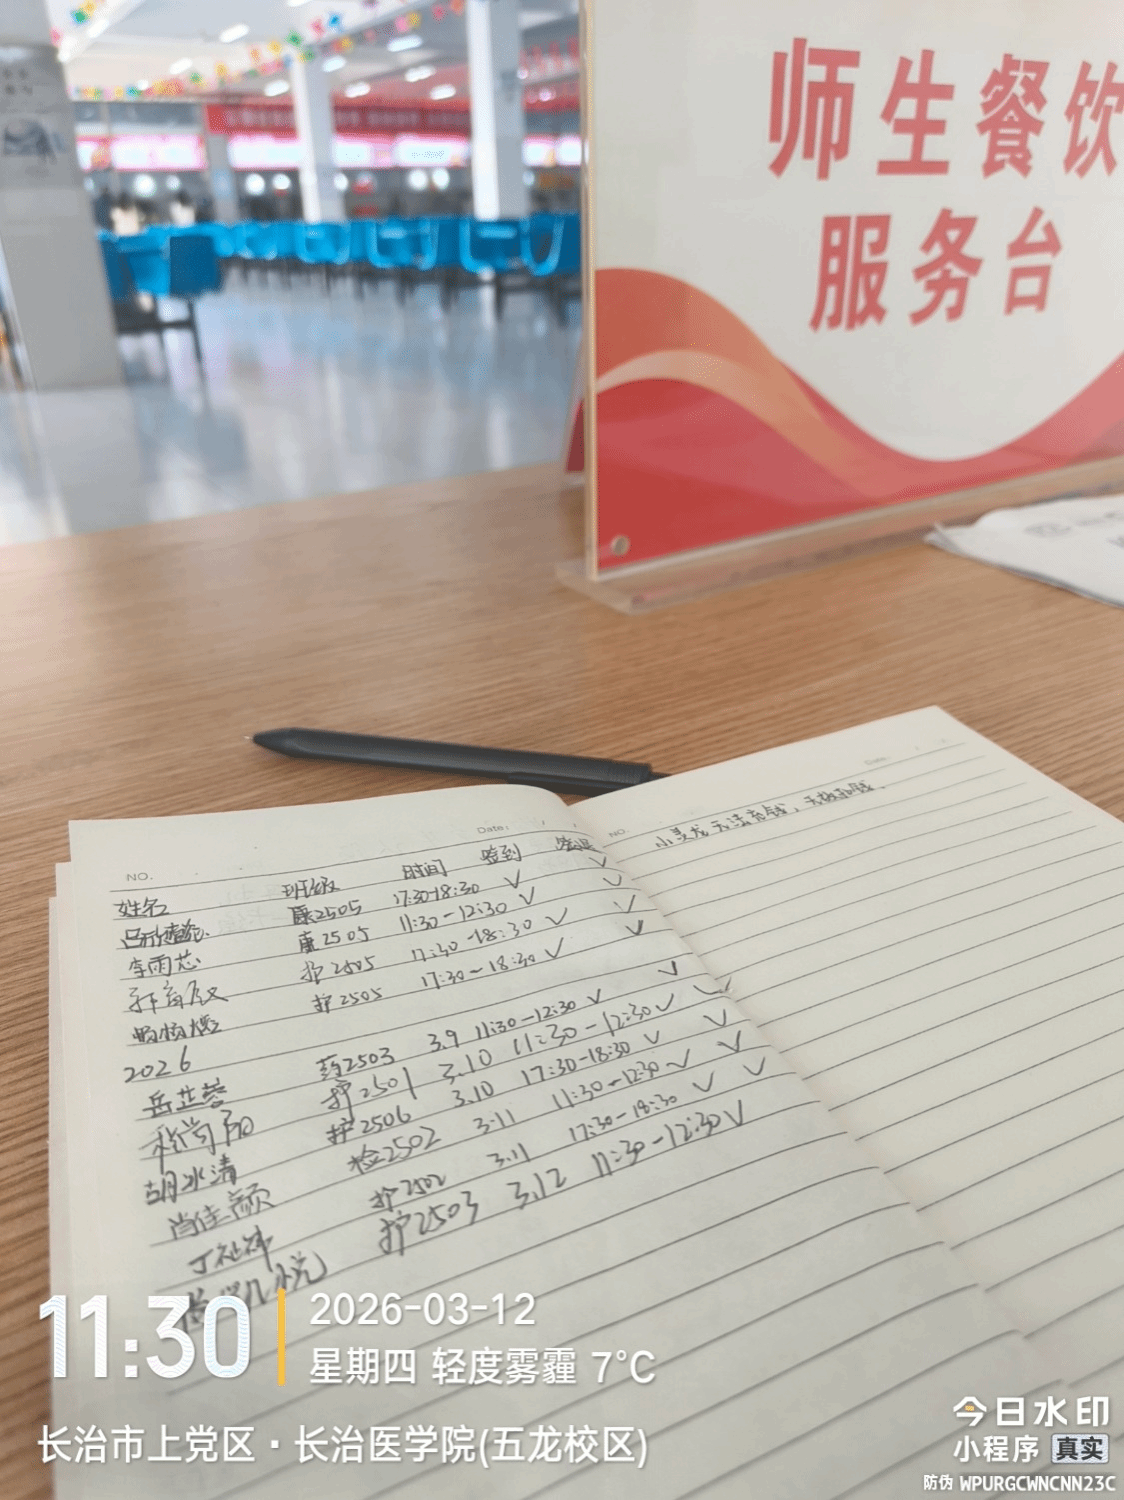 师生餐饮
服务台
Date:
NO.
小灵龙无法充钱，无法扣钱.
Date:
NO.
姓名 班级 时间 签到 签退
康2505 17:30-18:30 ✓ ✓
李雨芯 康2505 11:30-12:30 ✓ ✓
护2505 17:30-18:30 ✓ ✓
护2505 17:30-18:30 ✓ ✓
2026
岳芷蓉 药2503 3.9 11:30-12:30 ✓ ✓
护2501 3.10 11:30-12:30 ✓ ✓
胡冰清 护2506 3.10 17:30-18:30 ✓ ✓
肖佳颜 检2502 3.11 11:30-12:30 ✓ ✓
丁祉祎 护2502 3.11 17:30-18:30 ✓ ✓
悦 护2503 3.12 11:30-12:30 ✓
11:30
2026-03-12
星期四 轻度雾霾 7°C
长治市上党区·长治医学院(五龙校区)
今日水印
小程序 真实
防伪 WPURGCWNCNN23C